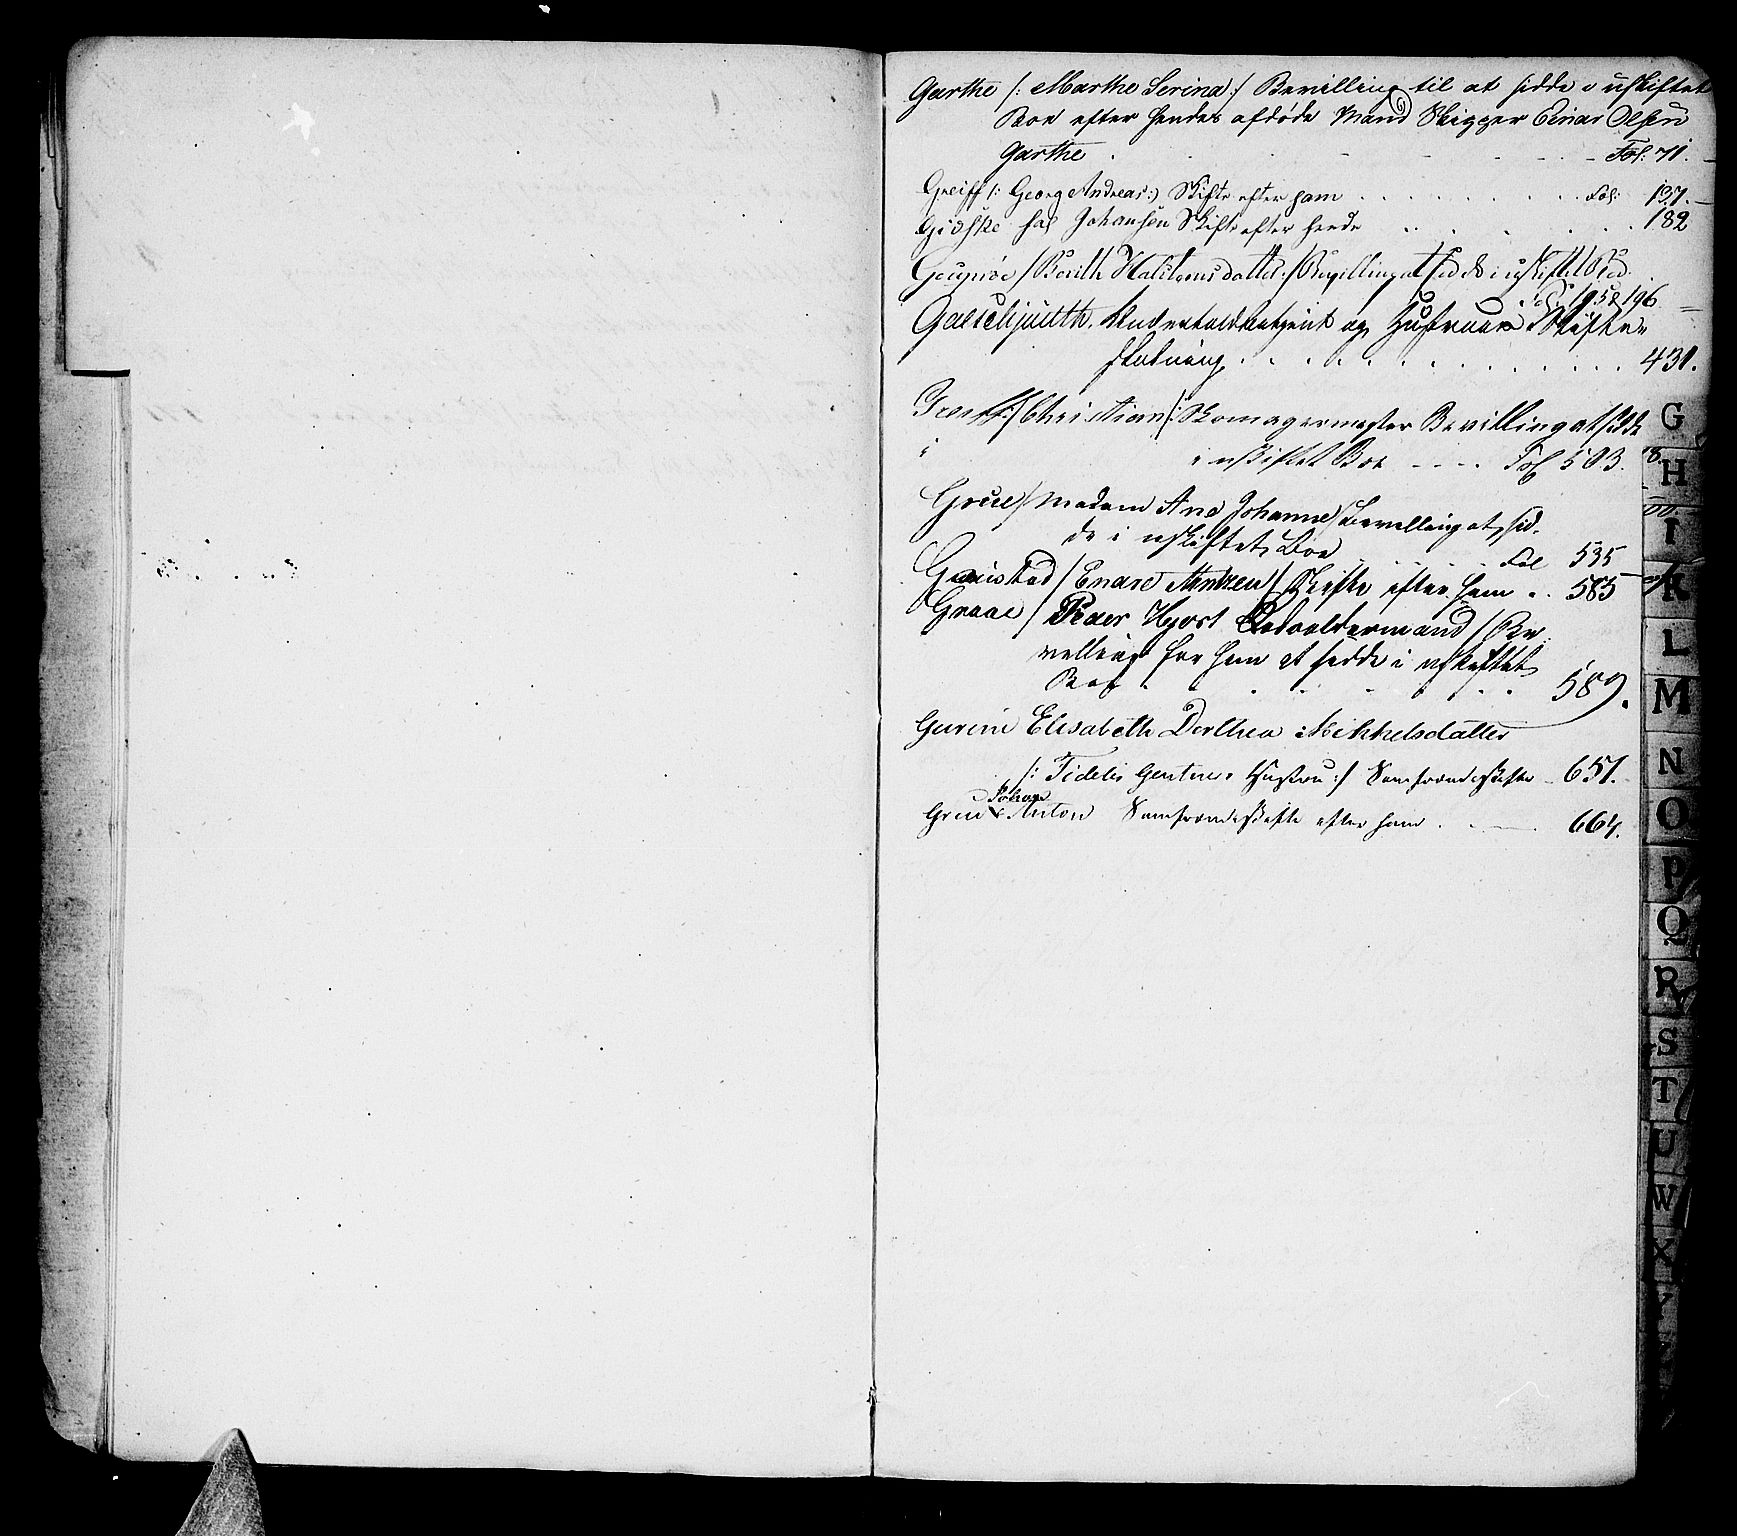 Garthe /: Marthe Serina :/ Bevilling til at sidde i uskiftet
Boe efter hendes afdøde Mand Skipper Einar Olsen
Garthe . . . . Fol: 71.
Greiff /: George Andreas :/ Skifte efter ham . . . . Fol: 137.
Gidske sal Johansen Skifte efter hende . . . . 182
/ Berith Halstensdatter :/ Bevilling at sidde i uskiftet Boe
Fol: 195 & 196
Galschjødth. og Hustrues Skifte-
slutning . . . . 431.
Greiff /: Christian :/ Skomagermester Bevilling at sidde
i uskiftet Boe - - - - Fol 503.
Grue / Madam Ane Johanne / Bevelling at sid-
de i uskiftet Boe . . . . Fol 535
Gunstad / Enare Arntzen / Skifte efter ham . . 585
Graae / Peder Hjort Oldermand / Be-
velling for ham at sedde i uskeftet
Boe . . . . 589.
Gurine Elisabeth Dorthea Mikkelsdatter
/: Fidelis Gentners Hustru :/ Samfrændeskifte - 657.
Johan
Grue Anton Samfrændeskifte efter ham . . 664.
G
H
I
K
L
M
N
O
P
Q
R
S
T
U
W
X
Y